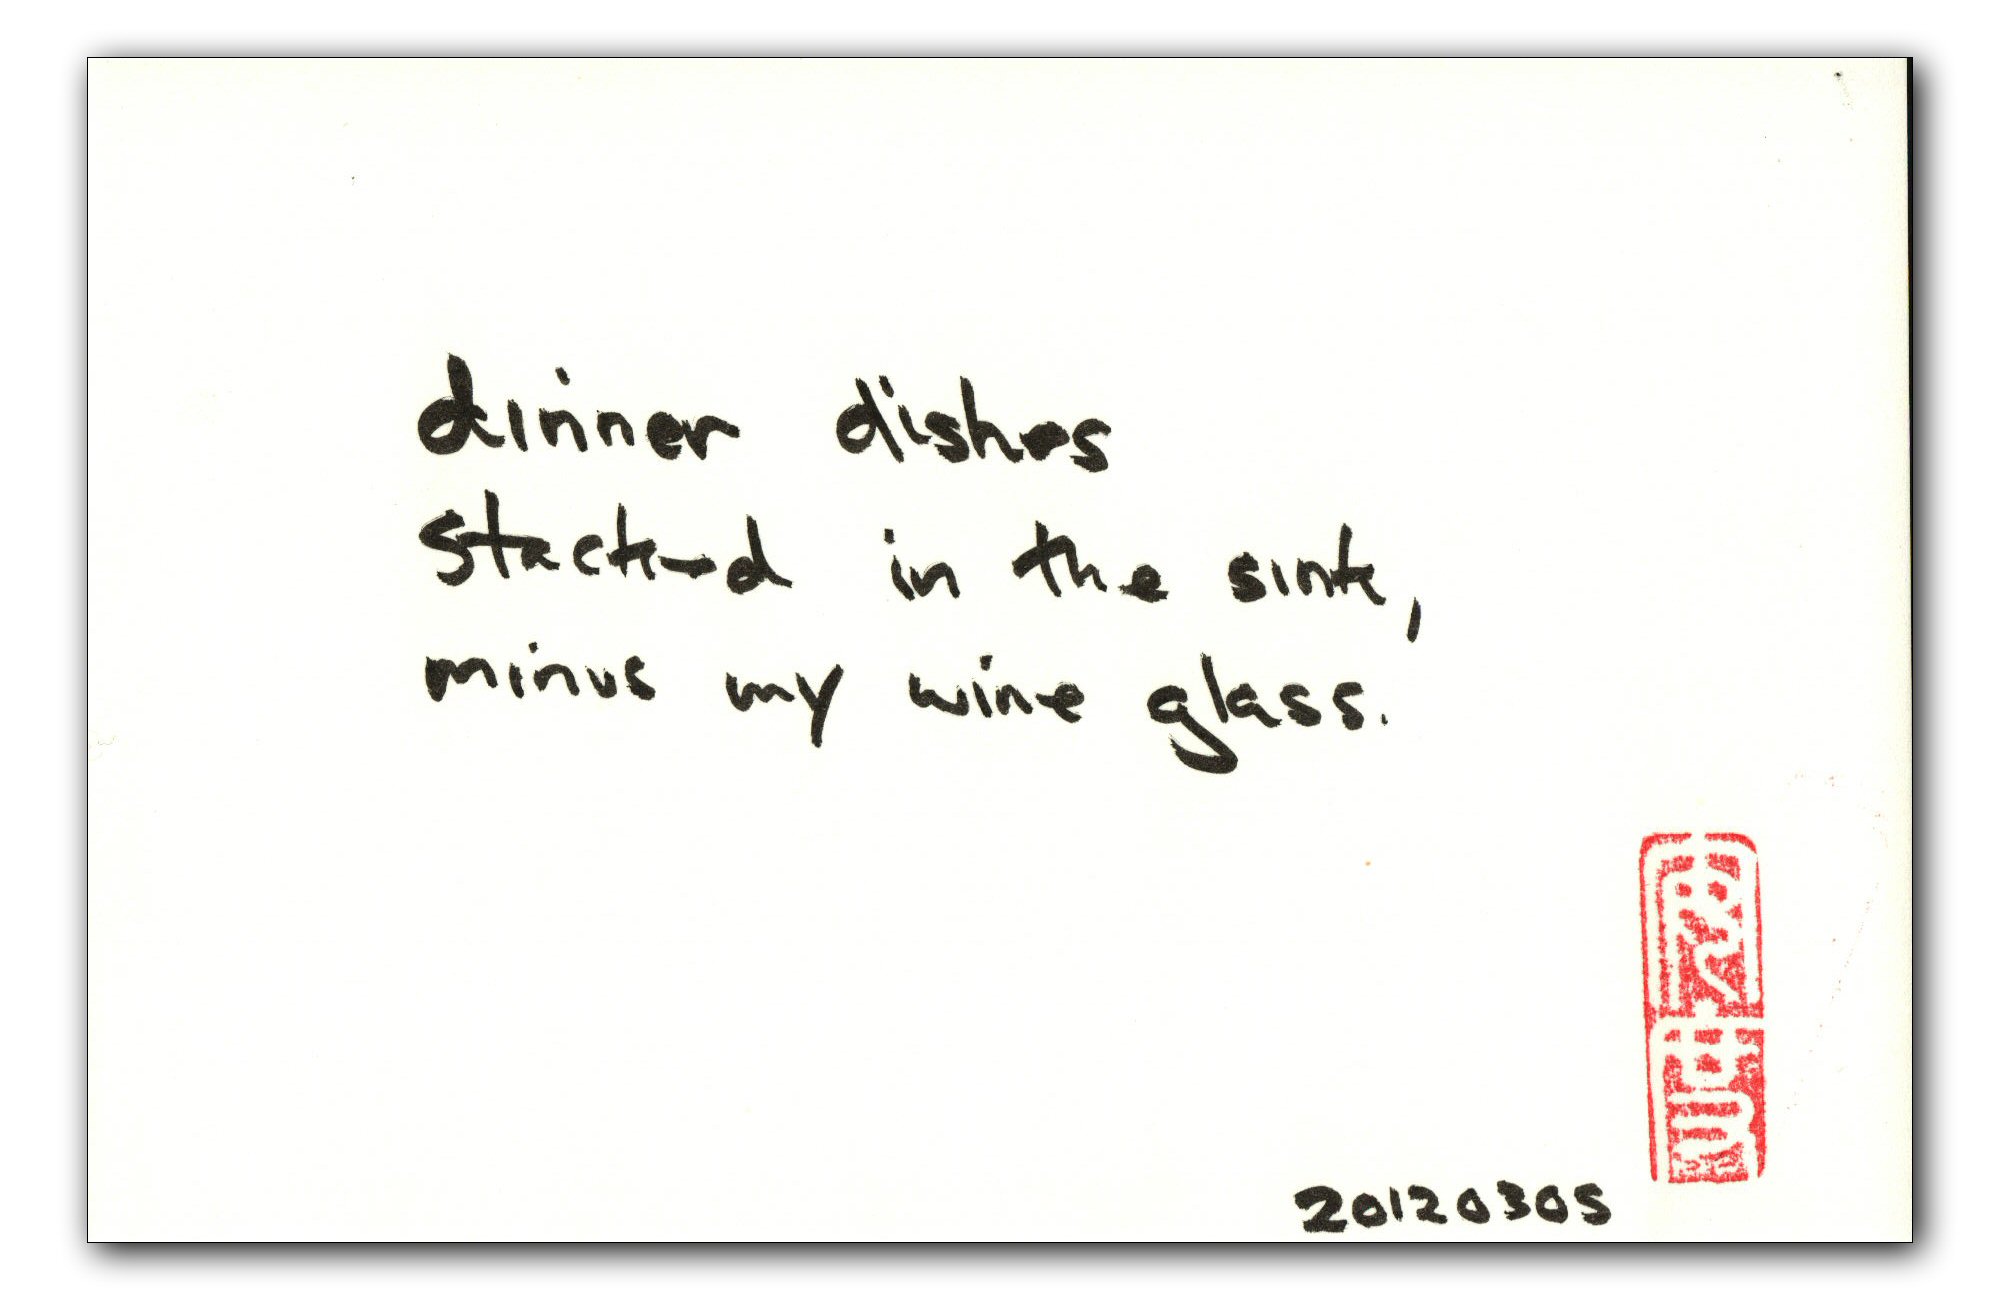 dinner dishes
stacked in the sink,
minus my wine glass.
20120305